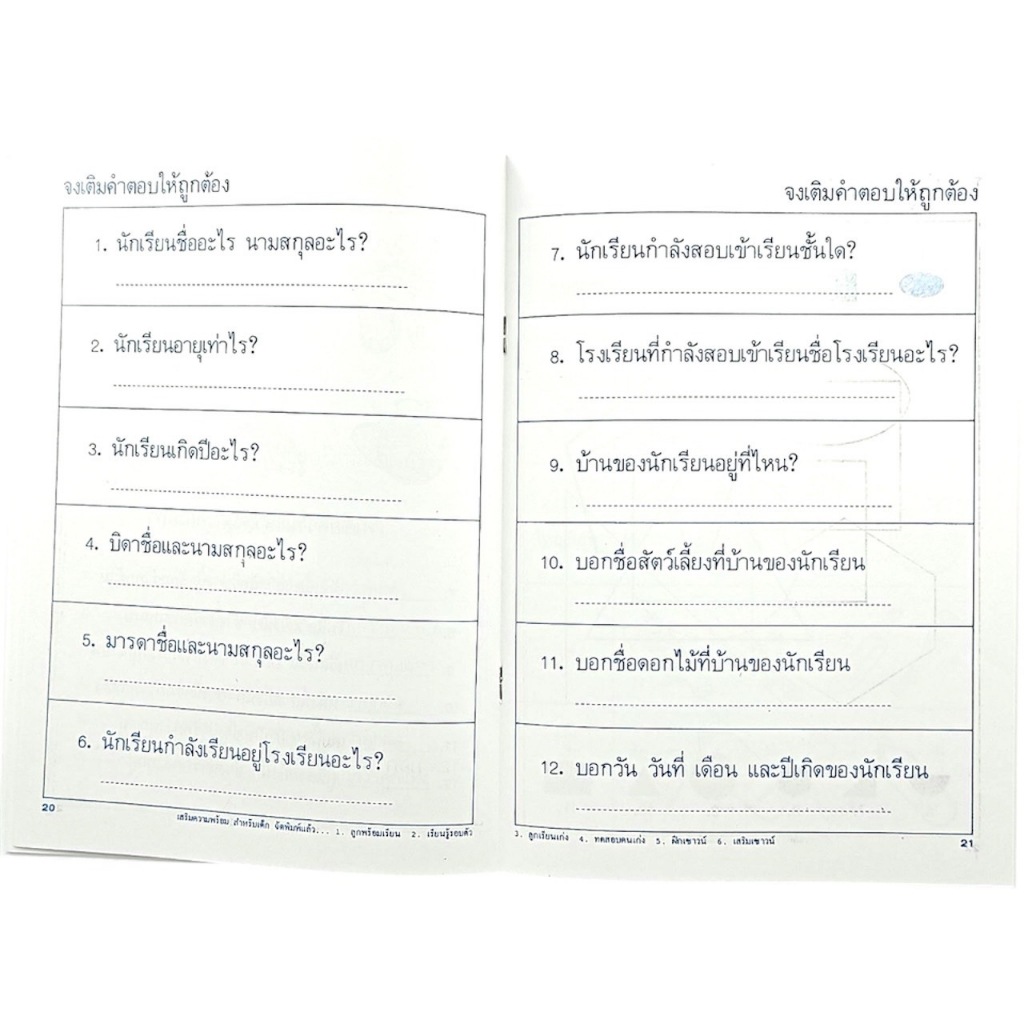 จงเติมคำตอบให้ถูกต้อง
1. นักเรียนชื่ออะไร นามสกุลอะไร?
2. นักเรียนอายุเท่าไร?
3. นักเรียนเกิดปีอะไร?
4. บิดาชื่อและนามสกุลอะไร?
5. มารดาชื่อและนามสกุลอะไร?
6. นักเรียนกำลังเรียนอยู่โรงเรียนอะไร?
20
เสริมความพร้อม สำหรับเด็ก จัดพิมพ์แล้ว... 1. ลูกพร้อมเรียน 2. เรียนรู้รอบตัว
จงเติมคำตอบให้ถูกต้อง
7. นักเรียนกำลังสอบเข้าเรียนชั้นใด?
8. โรงเรียนที่กำลังสอบเข้าเรียนชื่อโรงเรียนอะไร?
9. บ้านของนักเรียนอยู่ที่ไหน?
10. บอกชื่อสัตว์เลี้ยงที่บ้านของนักเรียน
11. บอกชื่อดอกไม้ที่บ้านของนักเรียน
12. บอกวัน วันที่ เดือน และปีเกิดของนักเรียน
3. ลูกเรียนเก่ง 4. ทดสอบคนเก่ง 5. ฝึกเชาวน์ 6. เสริมเชาวน์
21